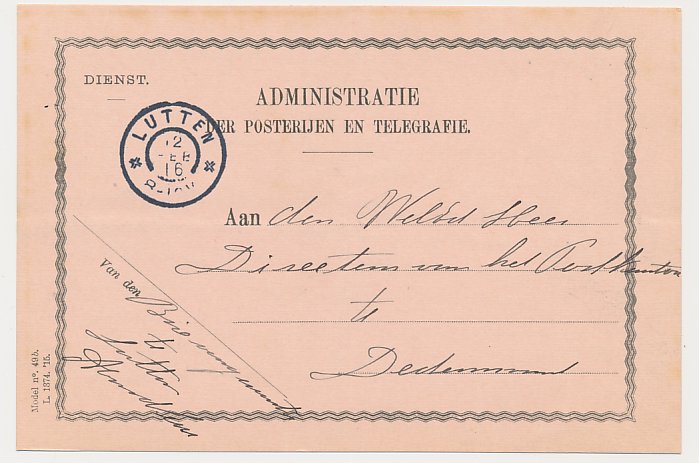 DIENST.
ADMINISTRATIE
DER POSTERIJEN EN TELEGRAFIE.
LUTTEN
12
FEB
16
Aan den WelEd Heer
Directeur van het Postkantoor
te
Dedemsvaart
Van den Brievengaarder
te
Lutten
Model nº. 49b.
L. 1374. '15.